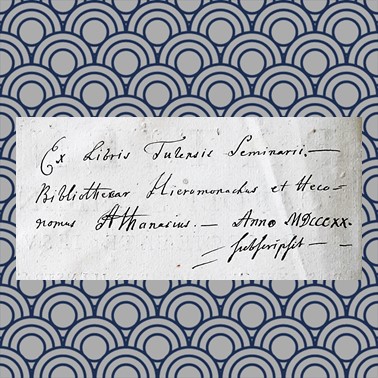 Ex Libris Tulensis Seminarii.—
Bibliothecar Hieromonachus et Heco=
nomus Athanasius.— Anno MDCCCXX.
subscripsit — —